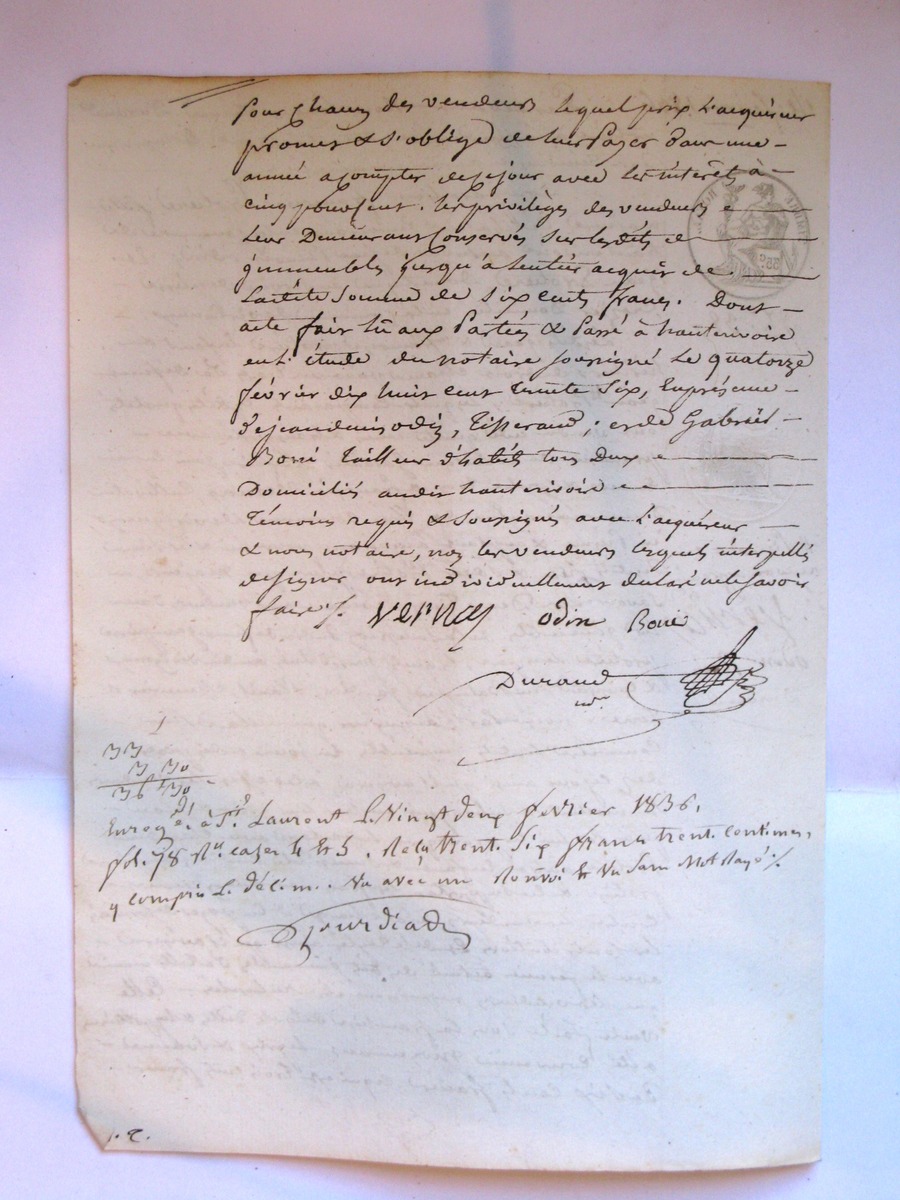 pour chacun des vendeurs lequel prix l'acquéreur
promet & s'oblige de leur payer dans une
année a compter de ce jour avec les intérêts à
cinq pour cent. les privilèges des vendeurs
leur Demeurant Conservés sur lesdits
immeubles jusqu'à l'entier acquit de
Ladite Somme de Six cents francs. Dont
acte fait lû aux Parties & Passé à hauterivoire
en l'étude du notaire soussigné Le quatorze
février dix huit cent Trente Six, En présence
de jean denis odin, Tisserand; et de Gabriël
Borié Tailleur d'habits tous Deux
Domiciliés audit hauterivoire
Témoins requis & soussignés avec l'acquéreur
& nous notaire, non les vendeurs lesquels interpellés
de signer ont individuellement déclaré ne le savoir
faire ./.
vernay odin Borié
Durand
nre
33
3 30
36 30
Enregtré à St Laurent Le Vingt deux fevrier 1836.
fol. 78 Ro. cases 4 et 5. Reçu trente Six francs trente centimes,
y compris le décime. Vu avec un Renvoi & Vu Sans Mot Rayé ./.